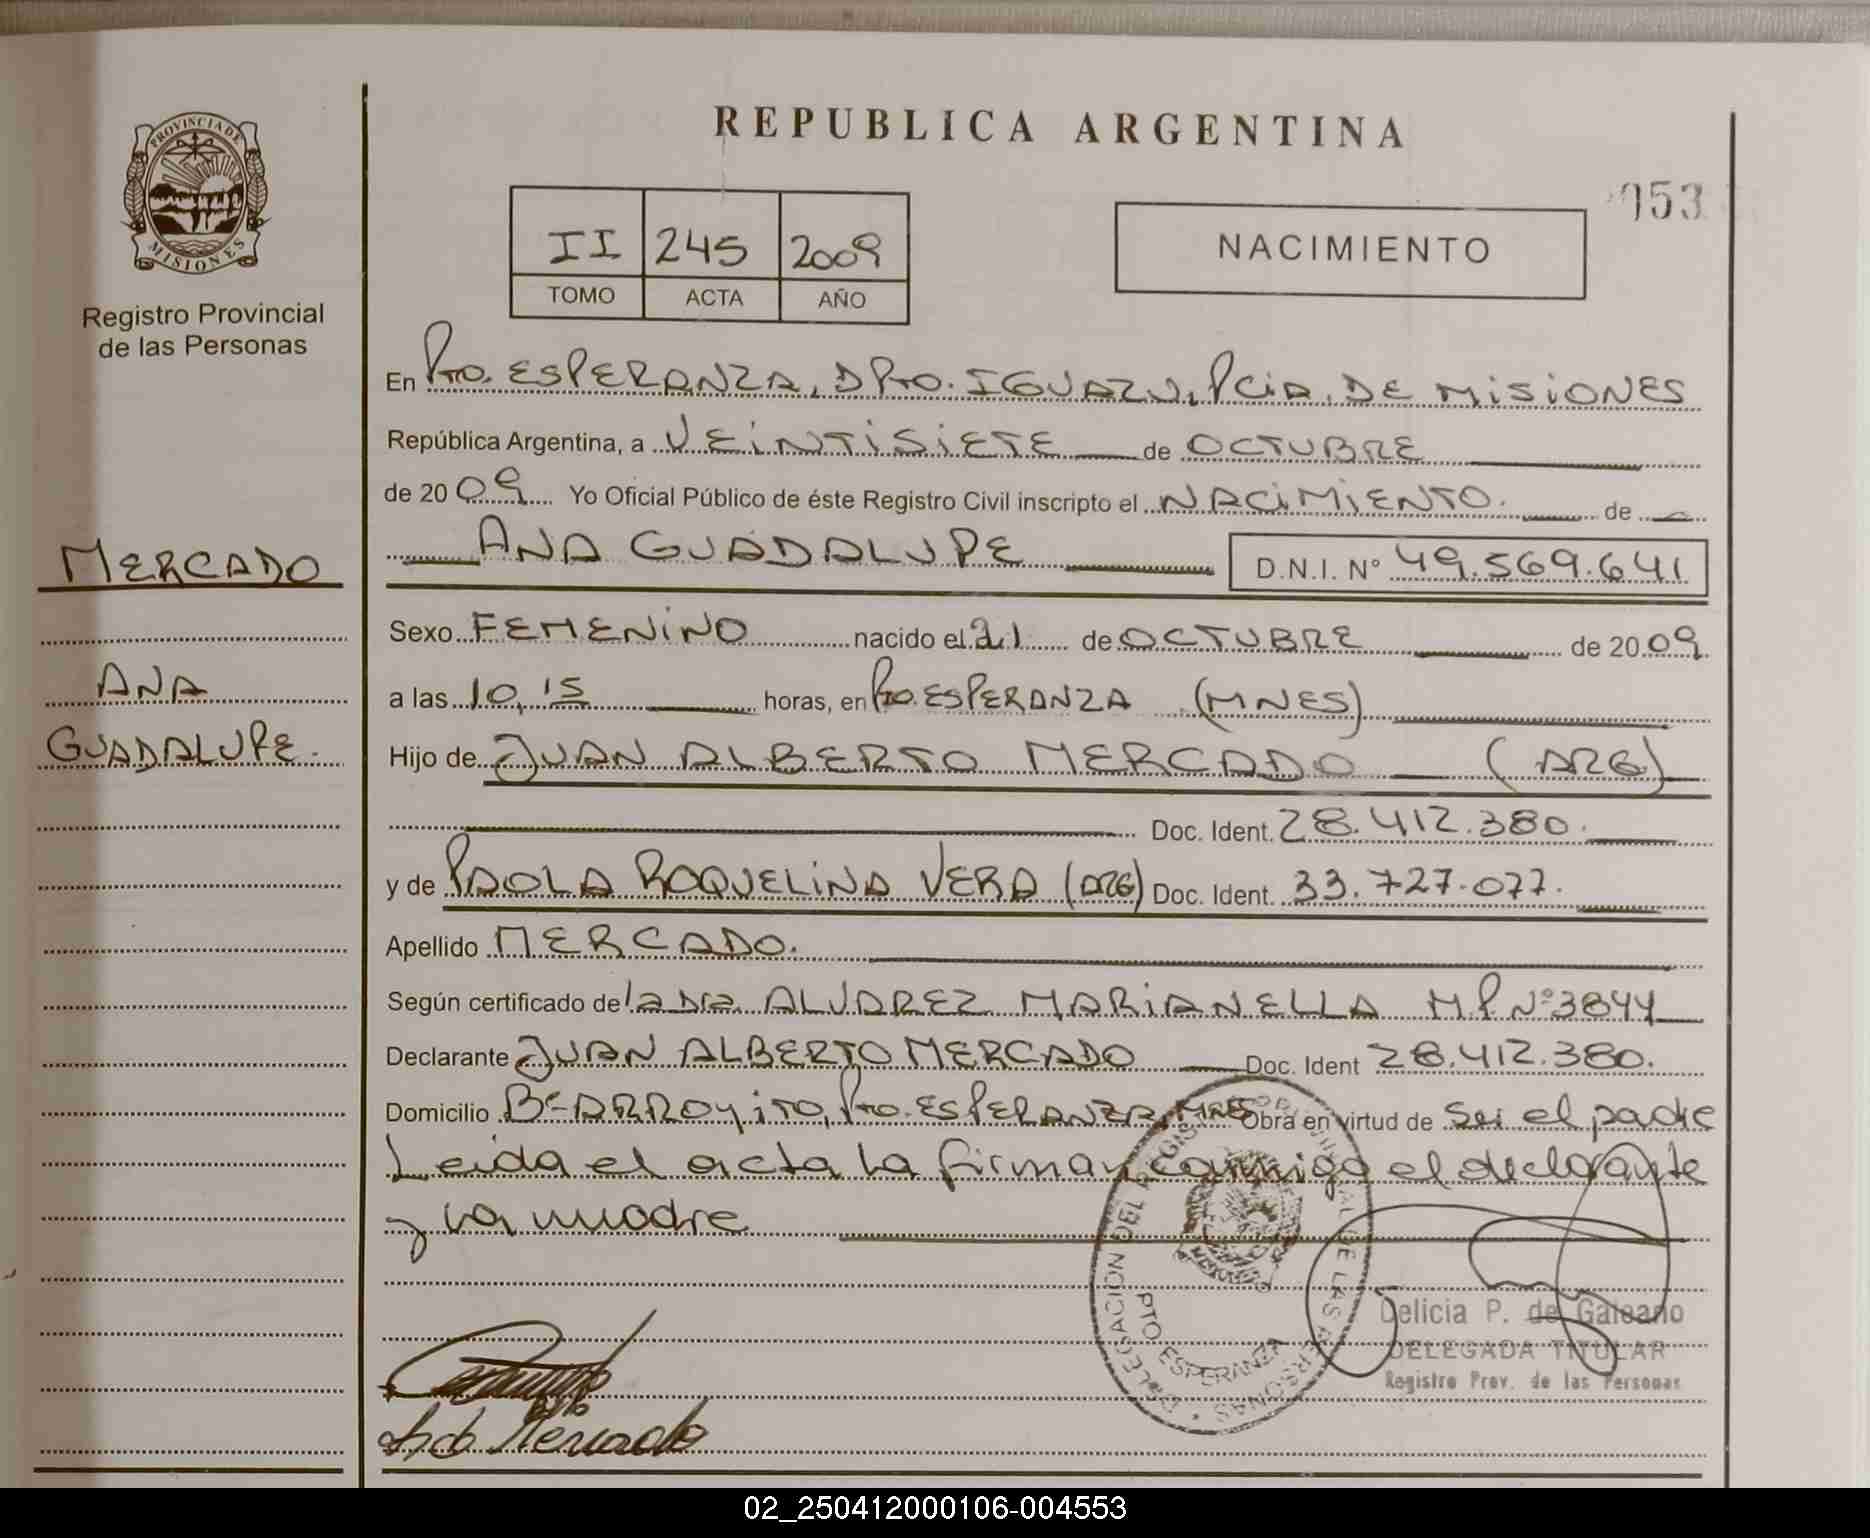 PROVINCIA DE
MISIONES
Registro Provincial
de las Personas
MERCADO
ANA
GUADALUPE.
REPUBLICA ARGENTINA
053
II 245 2009
TOMO ACTA AÑO
NACIMIENTO
En Pto. ESPERANZA, DPto. IGUAZU, PCiA. DE MiSiONES
República Argentina, a VEiNTiSiETE de OCTUBRE
de 2009 Yo Oficial Público de éste Registro Civil inscripto el NACiMiENTO. de
ANA GUADALUPE D.N.I. N° 49.569.641
Sexo FEMENiNO nacido el 21 de OCTUBRE de 2009
a las 10,15 horas, en Pto. ESPERANZA (MNES)
Hijo de JUAN ALBERTO MERCADO (ARG)
Doc. Ident. 28.412.380.
y de PAOLA ROQUELiNA VERA (ARG) Doc. Ident. 33.727.077.
Apellido MERCADO.
Según certificado de la Dra. ALVAREZ MARiANELLA M P N° 3844
Declarante JUAN ALBERTO MERCADO Doc. Ident 28.412.380.
Domicilio B°- ARROyiTO, Pto. ESPERANZA, MNES Obra en virtud de ser el padre
Leida el acta la firman conmigo el declarante
y la madre
DELEGACION DEL REGISTRO PROVINCIAL DE LAS PERSONAS
PTO ESPERANZA
Delicia P. de Galeano
DELEGADA TITULAR
Registro Prov. de las Personas
Mercado
02_250412000106-004553